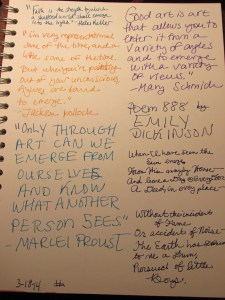 "Faith is the strength by which
a shattered world shall emerge
into the light." Helen Keller
"I'm very representational
some of the time, and a
little some of the time.
But when you're painting
out of your unconscious,
figures are bound
to emerge."
- Jackson Pollock
"ONLY THROUGH
ART CAN WE
EMERGE FROM
OURSELVES
AND KNOW
WHAT ANOTHER
PERSON SEES"
- MARCEL PROUST
3-1874
Good art is art
that allows you to
enter it from a
variety of angles
and to emerge
with a variety
of views"
- Mary Schmich
Poem 888 by
EMILY
DICKINSON
When I have seen the
Sun emerge
From His amazing House -
And leave a Day at every Door
A Deed, in every place -
Without the incident
of Fame
Or accident of Noise
The Earth has
to me a Drum,
Pursued of little
Boys.